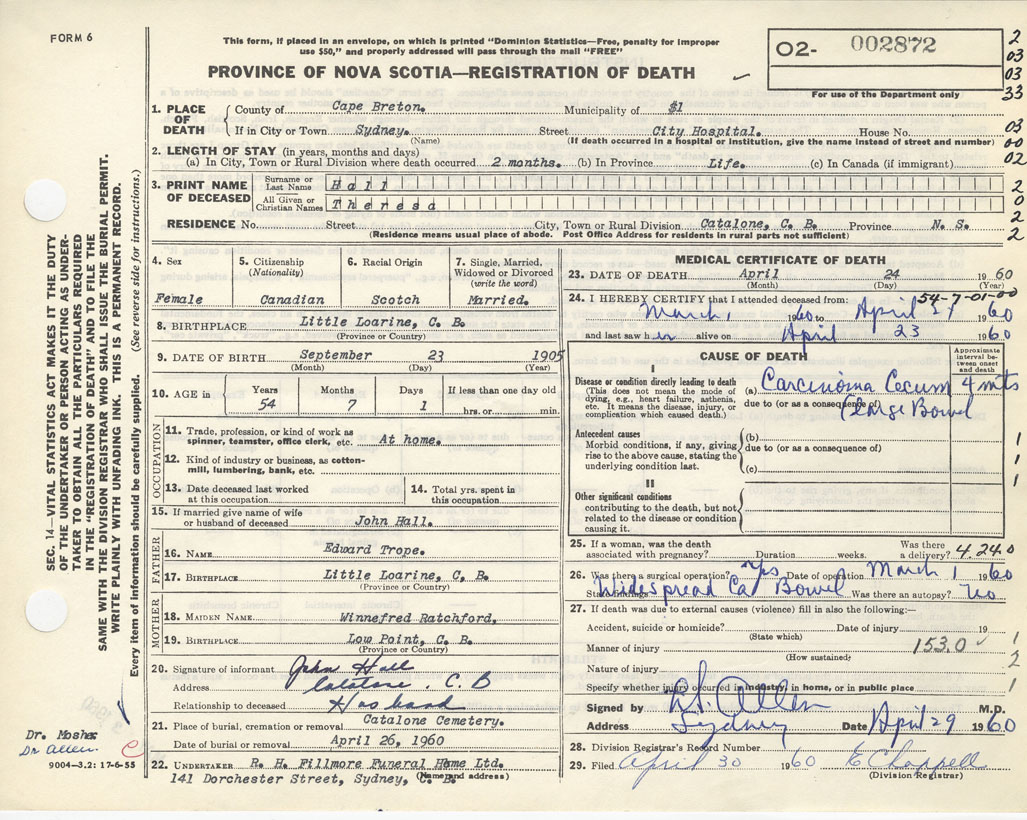 FORM 6
This form, if placed in an envelope, on which is printed "Dominion Statistics—Free, penalty for improper
use $50," and properly addressed will pass through the mail "FREE"
PROVINCE OF NOVA SCOTIA—REGISTRATION OF DEATH
O2- 002872
For use of the Department only
2
03
03
33
1. PLACE OF DEATH
County of Cape Breton. Municipality of $1
If in City or Town Sydney. Street City Hospital. House No.
(Name) (If death occurred in a hospital or institution, give the name instead of street and number)
03
00
02
2. LENGTH OF STAY (in years, months and days)
(a) In City, Town or Rural Division where death occurred 2 months. (b) In Province Life. (c) In Canada (if immigrant)
3. PRINT NAME OF DECEASED
Surname or Last Name Hall
All Given or Christian Names Theresa
2
0
2
2
RESIDENCE No. Street City, Town or Rural Division Catalone, C. B. Province N. S.
(Residence means usual place of abode. Post Office Address for residents in rural parts not sufficient)
4. Sex
Female
5. Citizenship
(Nationality)
Canadian
6. Racial Origin
Scotch
7. Single, Married,
Widowed or Divorced
(write the word)
Married.
8. BIRTHPLACE Little Loarine, C. B.
(Province or Country)
9. DATE OF BIRTH September 23 1905
(Month) (Day) (Year)
10. AGE in
Years Months Days If less than one day old
54 7 1 hrs. or min.
OCCUPATION
11. Trade, profession, or kind of work as
spinner, teamster, office clerk, etc. At home.
12. Kind of industry or business, as cotton-
mill, lumbering, bank, etc.
13. Date deceased last worked
at this occupation
14. Total yrs. spent in
this occupation
15. If married give name of wife
or husband of deceased John Hall.
FATHER
16. NAME Edward Trope.
17. BIRTHPLACE Little Loarine, C. B.
(Province or Country)
MOTHER
18. MAIDEN NAME Winnefred Ratchford,
19. BIRTHPLACE Low Point, C. B.
(Province or Country)
20. Signature of informant John Hall
Address Catalone. C. B
Relationship to deceased Husband
21. Place of burial, cremation or removal Catalone Cemetery.
Date of burial or removal April 26, 1960
22. UNDERTAKER R. H. Fillmore Funeral Home Ltd.
141 Dorchester Street, Sydney, C. B. (Name and address)
MEDICAL CERTIFICATE OF DEATH
23. DATE OF DEATH April 24 1960
(Month) (Day) (Year)
54-7-01-00
24. I HEREBY CERTIFY that I attended deceased from:
March 1 1960 to April 27 1960
and last saw her alive on April 23 1960
CAUSE OF DEATH
Approximate
interval be-
tween onset
and death
I
Disease or condition directly leading to death
(This does not mean the mode of
dying, e.g., heart failure, asthenia,
etc. It means the disease, injury, or
complication which caused death.)
(a) Carcinoma Cecum 4 mts
due to (or as a consequence of)
(Large Bowel
Antecedent causes
Morbid conditions, if any, giving
rise to the above cause, stating the
underlying condition last.
(b)
due to (or as a consequence of)
(c)
1
1
1
II
Other significant conditions
contributing to the death, but not
related to the disease or condition
causing it.
25. If a woman, was the death
associated with pregnancy? Duration weeks. Was there
a delivery? 4.24.0
26. Was there a surgical operation? Yes Date of operation March 1 1960
State findings Widespread Ca Bowel Was there an autopsy? no
27. If death was due to external causes (violence) fill in also the following:—
Accident, suicide or homicide? Date of injury 19
(State which)
1
Manner of injury 153.0
(How sustained)
2
Nature of injury
Specify whether injury occurred in industry, in home, or in public place
1
Signed by Allen M.D.
Address Sydney Date April 29 1960
28. Division Registrar's Record Number
29. Filed April 30 1960 E Chappell
(Division Registrar)
SEC. 14—VITAL STATISTICS ACT MAKES IT THE DUTY
OF THE UNDERTAKER OR PERSON ACTING AS UNDER-
TAKER TO OBTAIN ALL THE PARTICULARS REQUIRED
IN THE "REGISTRATION OF DEATH" AND TO FILE THE
SAME WITH THE DIVISION REGISTRAR WHO SHALL ISSUE THE BURIAL PERMIT.
WRITE PLAINLY WITH UNFADING INK. THIS IS A PERMANENT RECORD.
Every item of information should be carefully supplied. (See reverse side for instructions.)
Dr. Mosher
Dr Allen
9004—3.2: 17-6-55